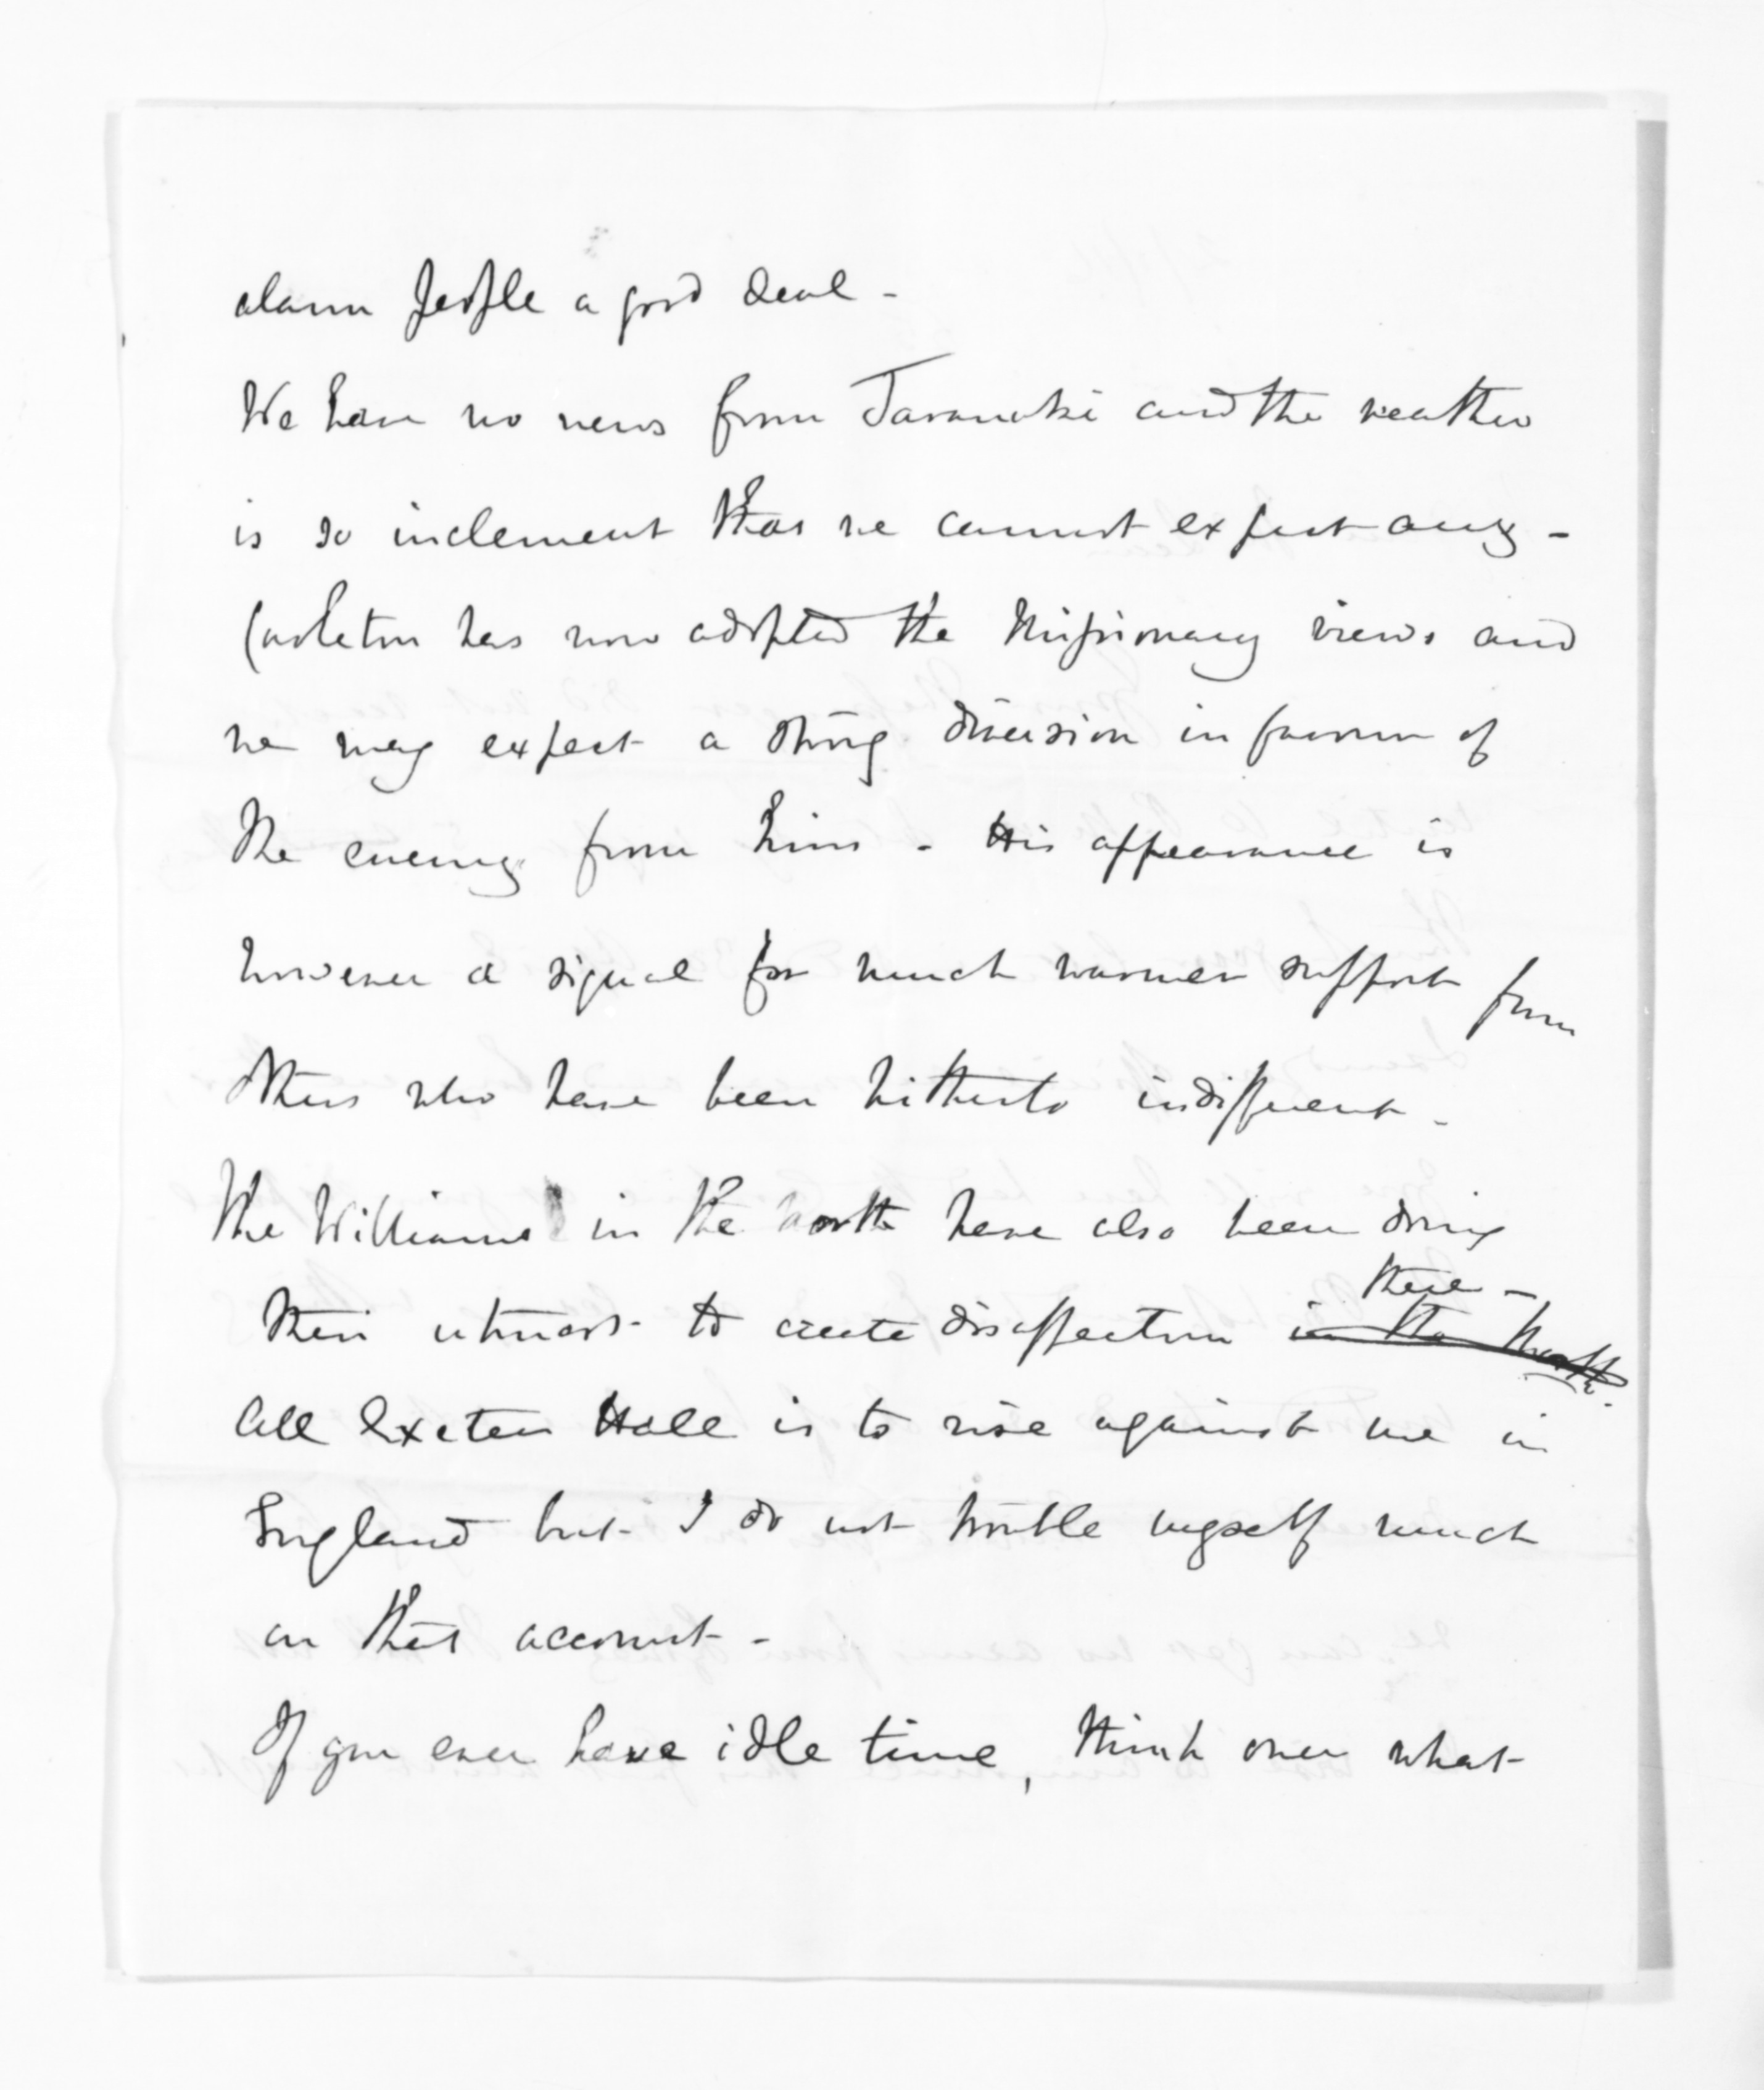 alarm people a good deal -
We have no news from Taranaki and the weather
is so inclement that we cannot expect any -
Carleton has now adopted the Missionary views and
we may expect a strong diversion in favour of
the enemy from him - His appearance is
however a signal for much warmer support from
others who have been hitherto indifferent -
The Williams in the North have also been doing
there -
their utmost to create disaffection in the North.
All Exeter Hall is to rise against me in
England but I do not trouble myself much
on that account -
If you ever have idle time, think over what